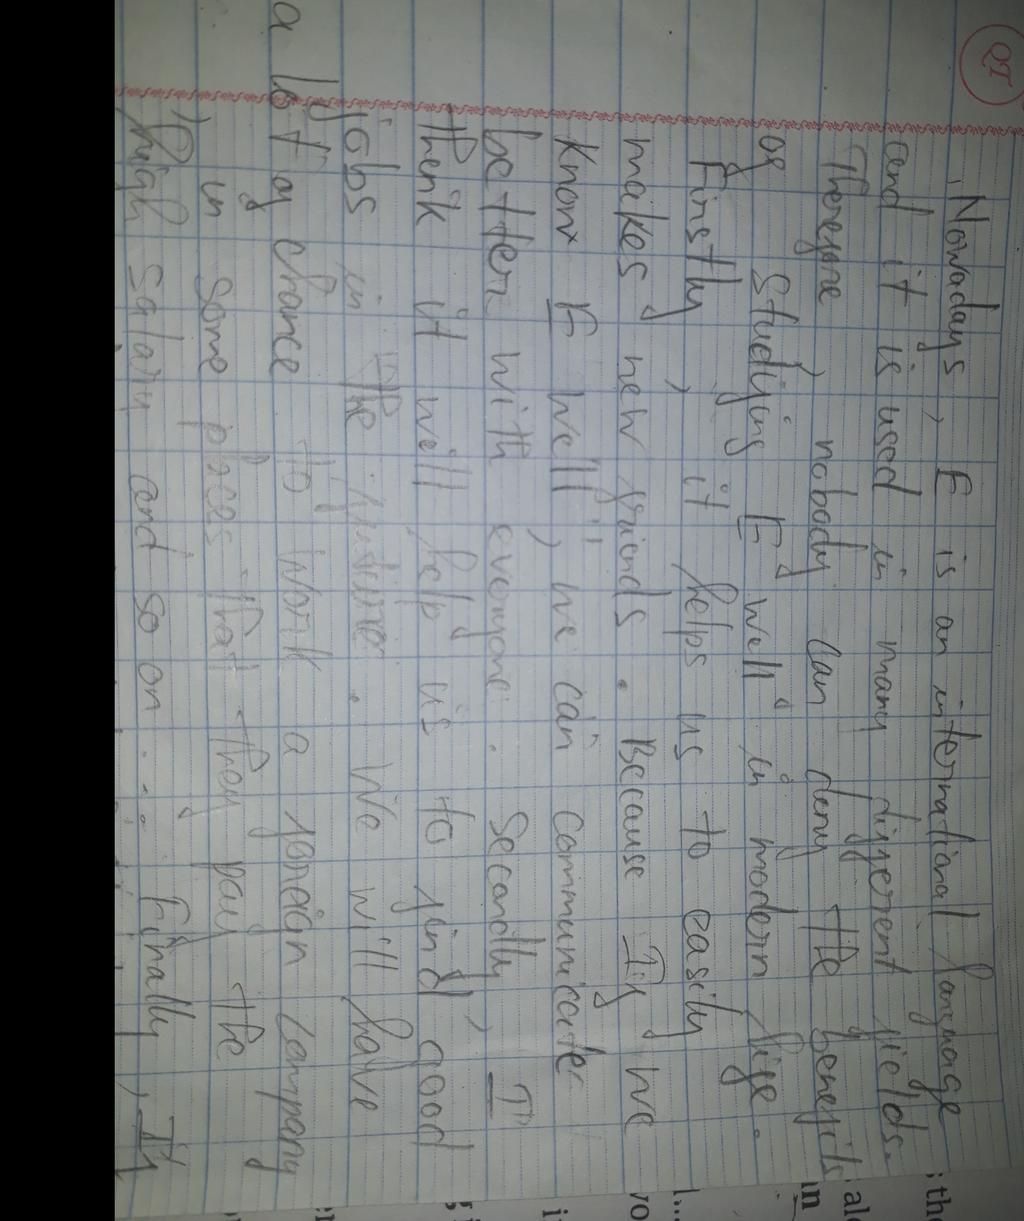 QI
Nowadays, E is an international language
and it is used in many different fields.
Therefore, nobody can deny the benefits
of studying E well in modern life.
Firstly, it helps us to easily
makes new friends. Because If we
know E well, we can communicate
better with everyone. Secondly, I
think it will help us to find good
jobs in the future. We will have
a lot of chance to work a foreign company
in some places that they pay the
high salary and so on... Finally, If